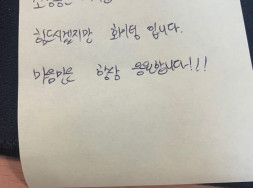 힘드시겠지만 화이팅 입니다.
마음만은 항상 응원합니다~!!!